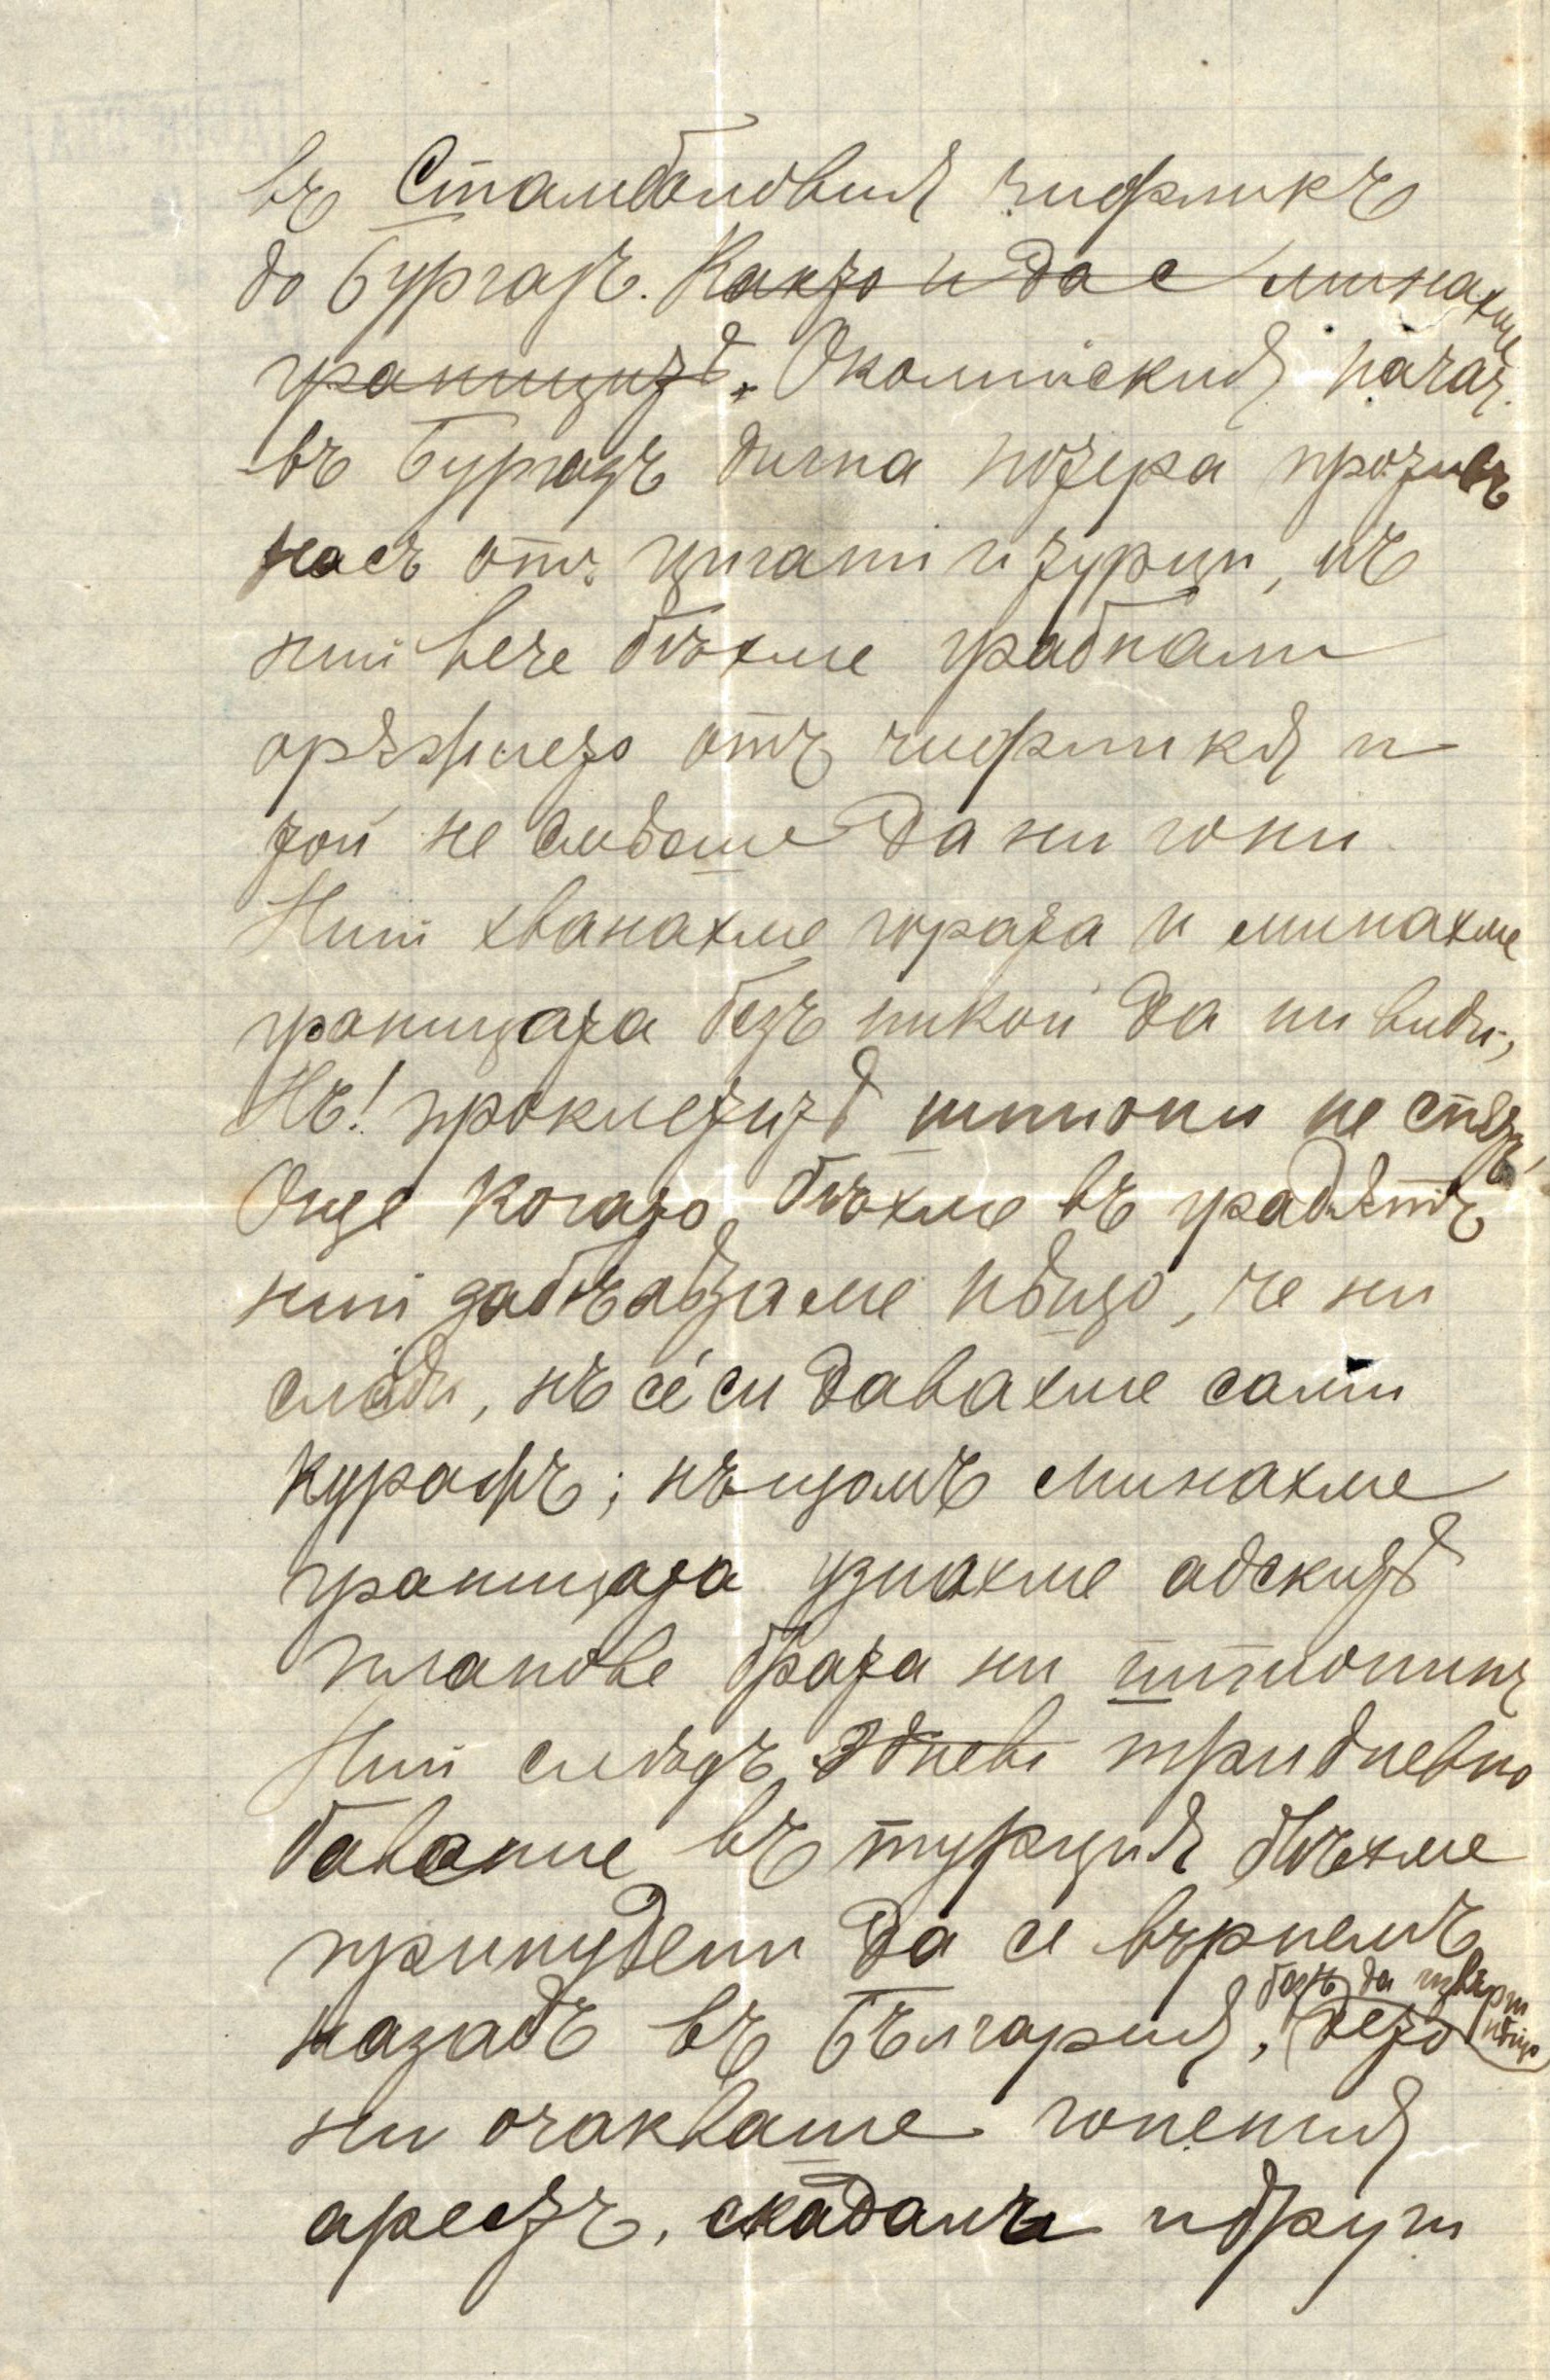 въ Стамболовия чифликъ
до Бургасъ. Както и да е минахме
границитѣ. Околийския начал.
въ Бургазъ дигна потера противъ
насъ отъ цигани и турци, нъ
ний вече бѣхме грабнали
орѫжието отъ чифлика и
той не смѣеше да ни гони.
Ний хванахме гората и минахме
границата безъ никой да ни види,
Нъ! проклетитѣ шпиони не спятъ,
Още когато бѣхме въ градътъ
ний забѣлѣзвахме нѣщо, че ни
следи, нъ се си давахме сами
куражъ; нъ щомъ минахме
границата узнахме адскитѣ
планове брата ни шпионинъ
Ний слѣдъ 3 дневе тридневно
бавение въ турция бѣхме
принудени да се върнемъ
назадъ въ България, безъ да извърш. нѣщо дето
ни очакваше гонения
арестъ, скандалъ и други